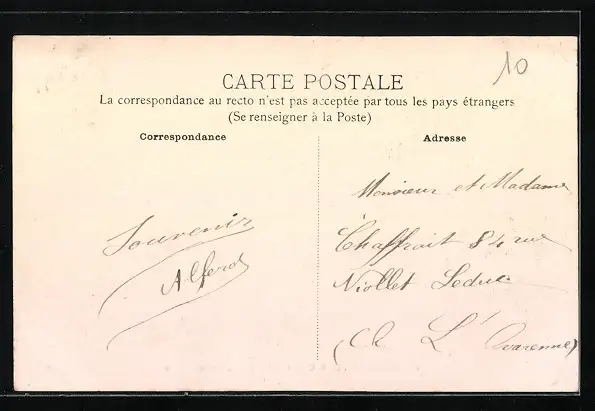 10
CARTE POSTALE
La correspondance au recto n'est pas acceptée par tous les pays étrangers
(Se renseigner à la Poste)
Correspondance
Adresse
Monsieur et Madame
Souvenir
Chaffrait 84 rue
Alfero
Viollet Leduc
L' Varenne